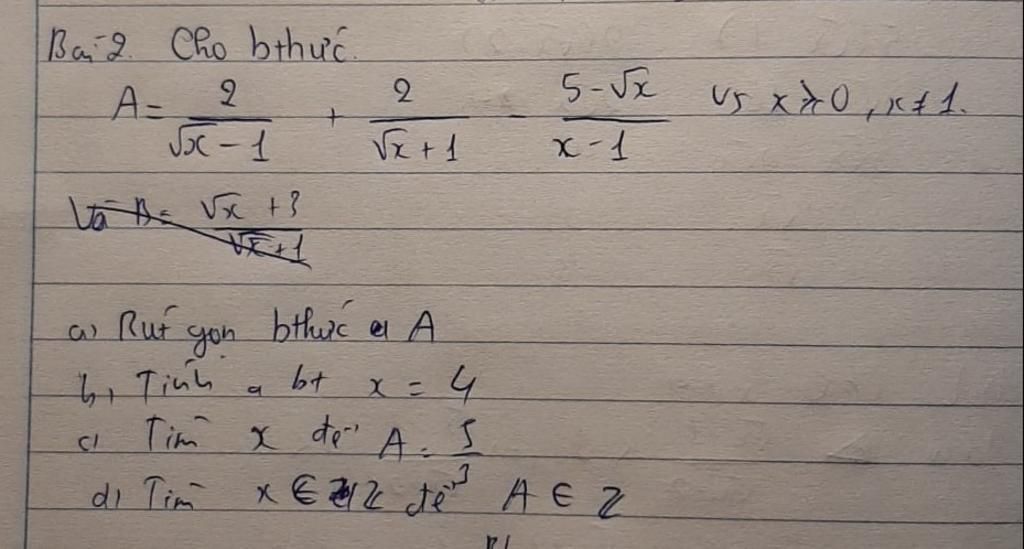 Bài 2. Cho bthức.
A = 2/(√x - 1) + 2/(√x + 1) - (5 - √x)/(x - 1) vs x ≥ 0, x ≠ 1.
Và B = (√x + 3)/(√x + 1)
a) Rút gọn bthức A
b, Tính a bt x = 4
c) Tìm x để A = 5/3
d) Tìm x ∈ Z để A ∈ Z